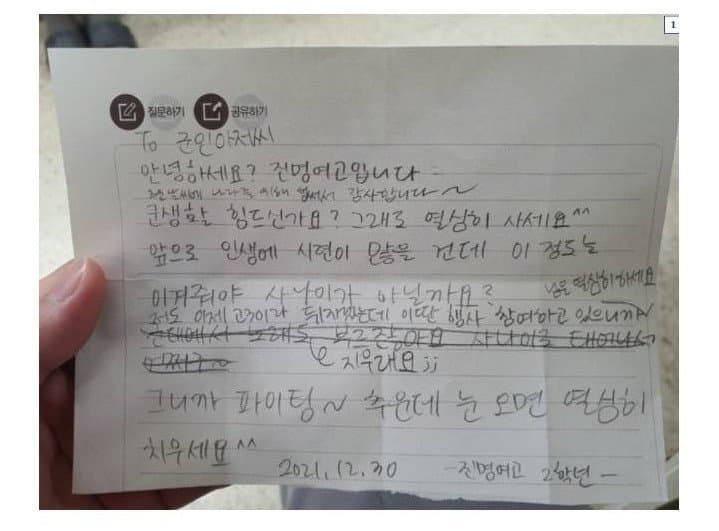 1
질문하기 공유하기
To 군인아저씨
안녕하세요? 진명여고입니다
추운 날씨에 나라를 위해 힘써서 감사합니다~
군생활 힘드신가요? 그래도 열심히 사세요^^
앞으로 인생에 시련이 많을 건데 이 정도는
이겨줘야 사나이가 아닐까요?
님은 열심히 하세요
저도 이제 고3이라 뒤지겠는데 이딴 행사 참여하고 있으니까~
군대에서 노래도 부르잖아요 사나이로 태어나서
어쩌구~
지우래요;;
그니까 파이팅~ 추운데 눈 오면 열심히
치우세요^^
2021.12.30 -진명여고 2학년-